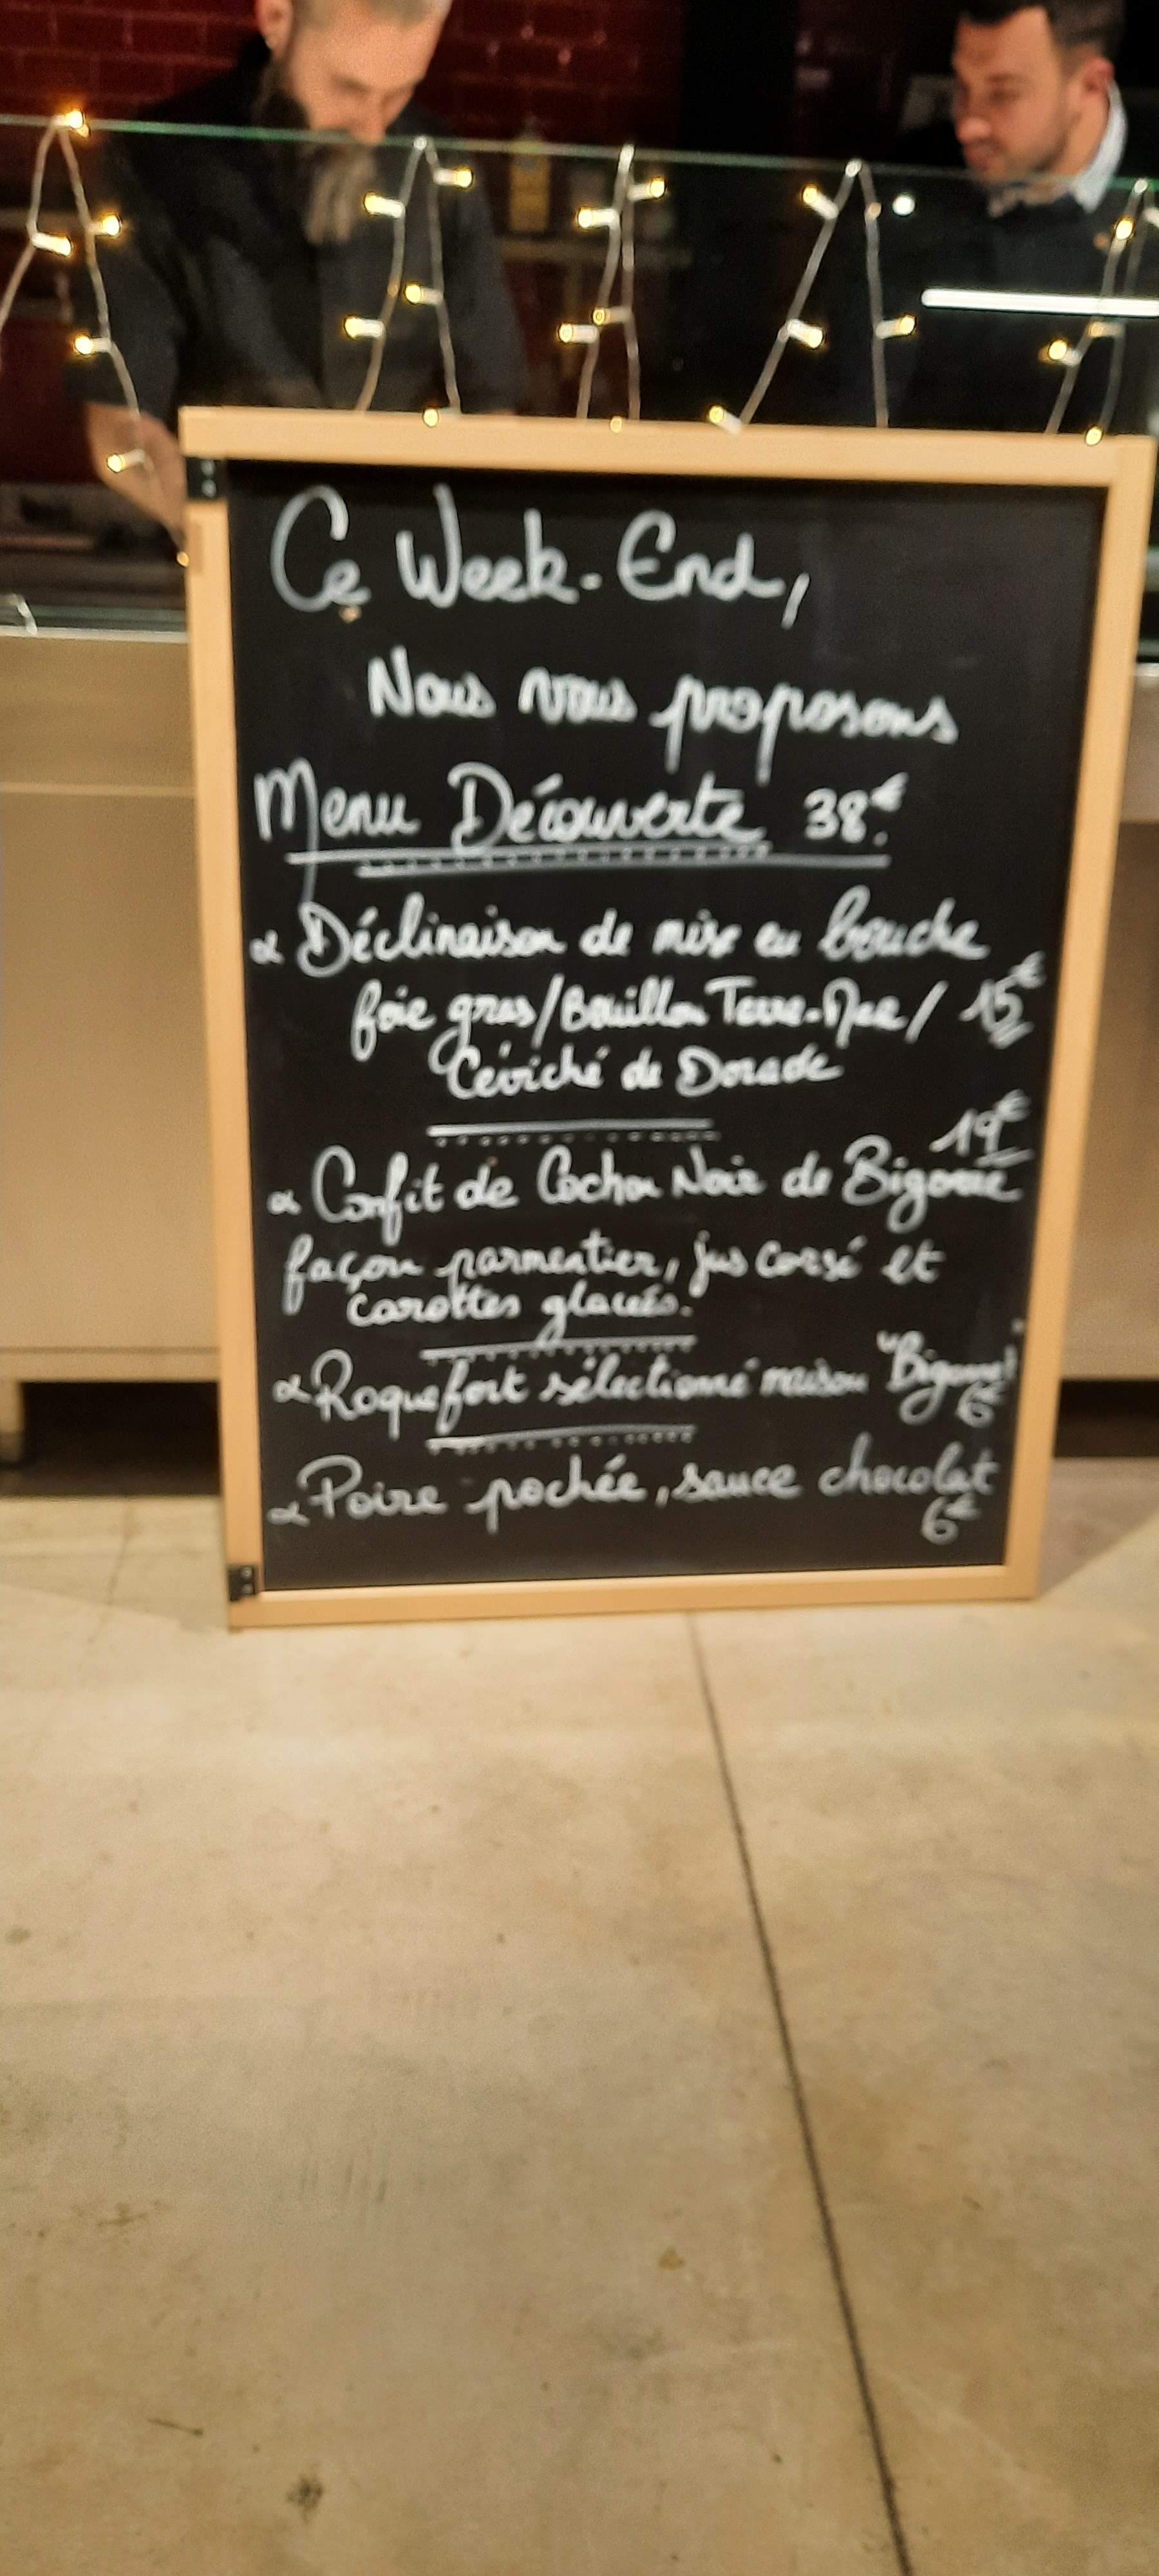 Ce Week-End,
Nous vous proposons
Menu Découverte 38€
α Déclinaison de mise en bouche
foie gras/Bouillon Terre-Mer/ 15€
Céviché de Dorade
19€
α Confit de Cochon Noir de Bigorre
façon parmentier, jus corsé et
carottes glacées.
α Roquefort sélectionné maison
6€
α Poire pochée, sauce chocolat
6€